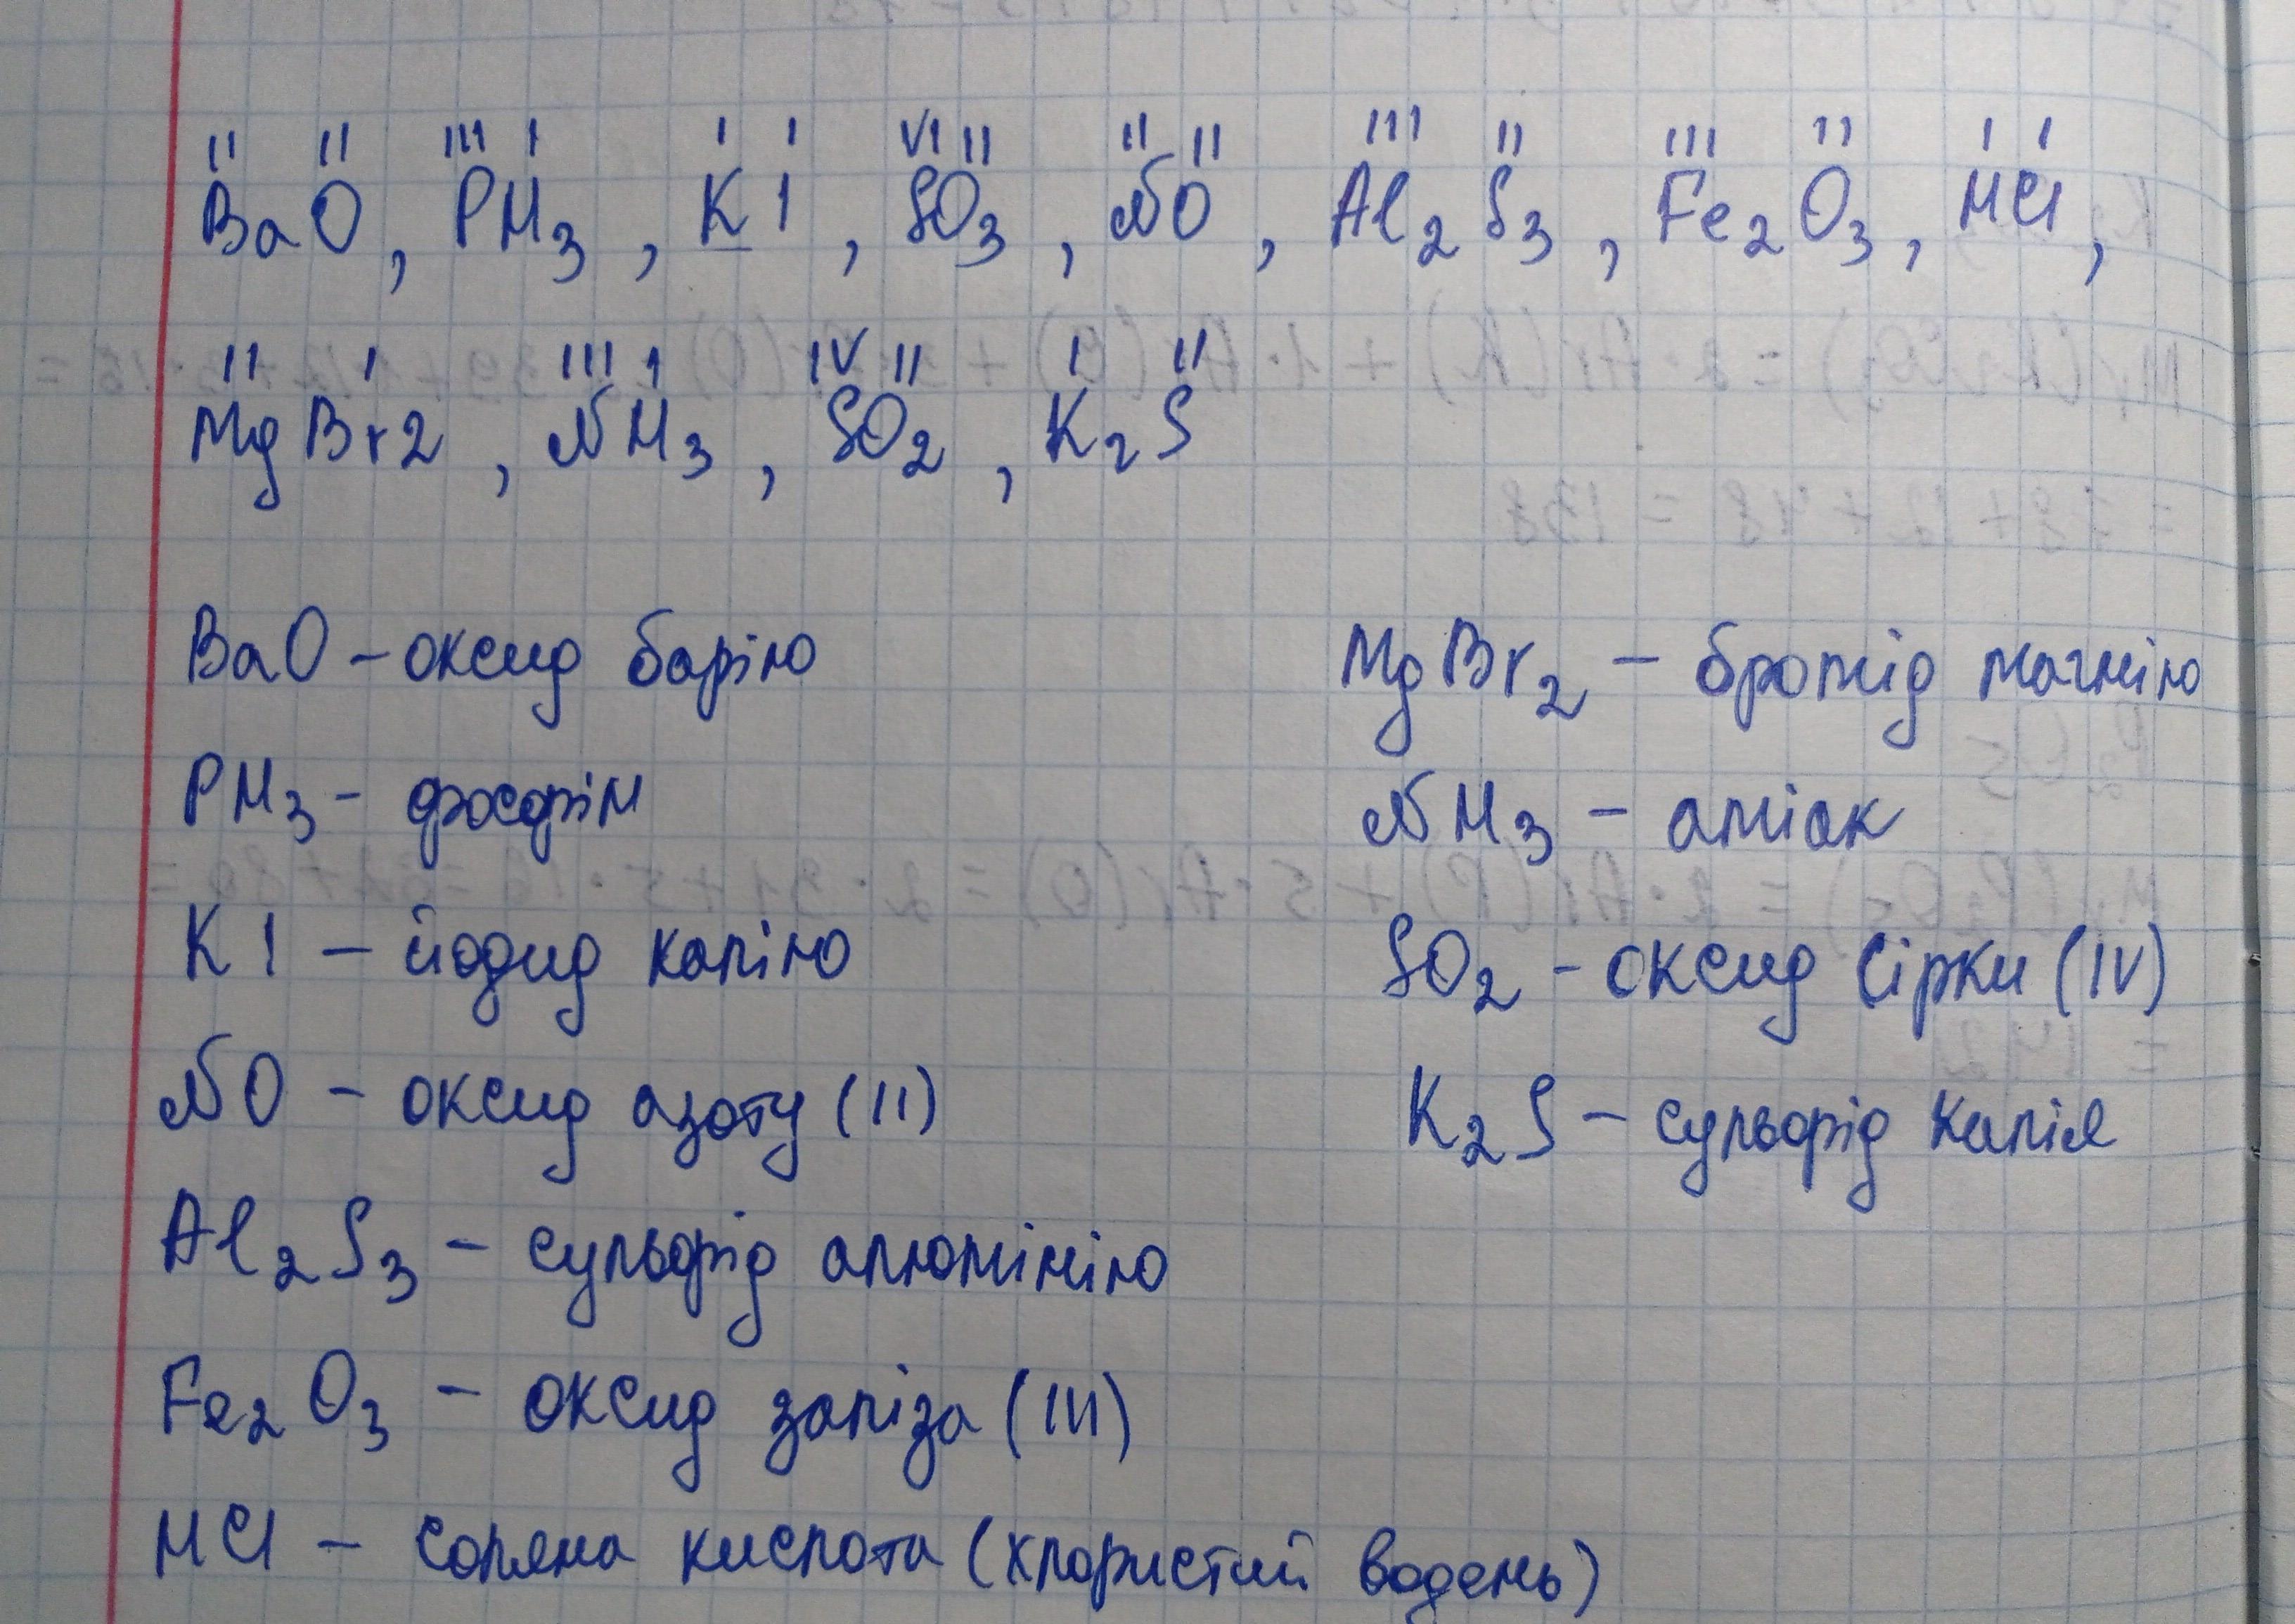 II II III I I I VI II II II III II III II I I
BaO, PH₃, KI, SO₃, NO, Al₂S₃, Fe₂O₃, HCl,
II I III I IV II I II
MgBr2, NH₃, SO₂, K₂S
BaO – оксид барію
PH₃ – фосфін
KI – йодид калію
NO – оксид азоту (II)
Al₂S₃ – сульфід алюмінію
Fe₂O₃ – оксид заліза (III)
HCl – соляна кислота (хлористий водень)
MgBr₂ – бромід магнію
NH₃ – аміак
SO₂ – оксид сірки (IV)
K₂S – сульфід калія